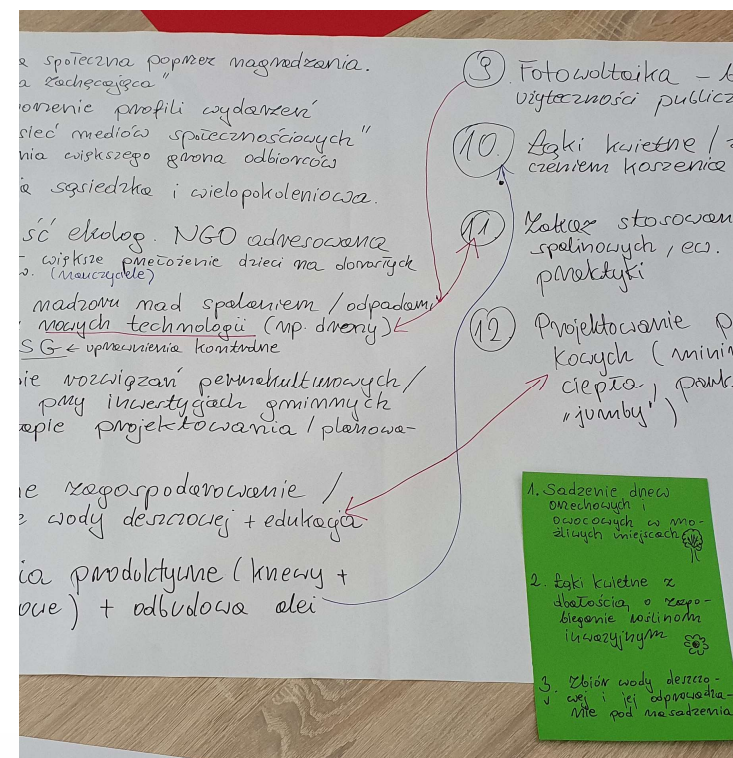 społeczna poprzez nagradzania.
zachęcająca"
orzenie profili wydarzeń
sieć mediów społecznościowych"
nia większego grona odbiorców
sąsiedzka i wielopokoleniowa.
ść ekolog. NGO adresowana
większe przełożenie dzieci na dorosłych
(nauczyciele)
nadzoru nad spalaniem / odpadami,
nowych technologii (np. drony)
SG ← uprawnienia kontrolne
ie rozwiązań permakulturowych /
przy inwestycjach gminnych
apie projektowania / planowa-
e zagospodarowanie /
wody deszczowej + edukacja
ia produktywne (krzewy +
owe) + odbudowa alei
9. Fotowoltaika –
użyteczności publicz
10. Łąki kwietne /
czeniem koszenia
11 Zakaz stosowan
spalinowych, ew.
praktyki
12. Projektowanie p
kowych (minim
ciepła, park
„jumby")
1. Sadzenie drzew
orzechowych i
owocowych w mo-
żliwych miejscach
2. Łąki kwietne z
dbałością o zapo-
bieganie roślinom
inwazyjnym
3. Zbiór wody deszczo-
wej i jej odprowadza-
nie pod nasadzenia